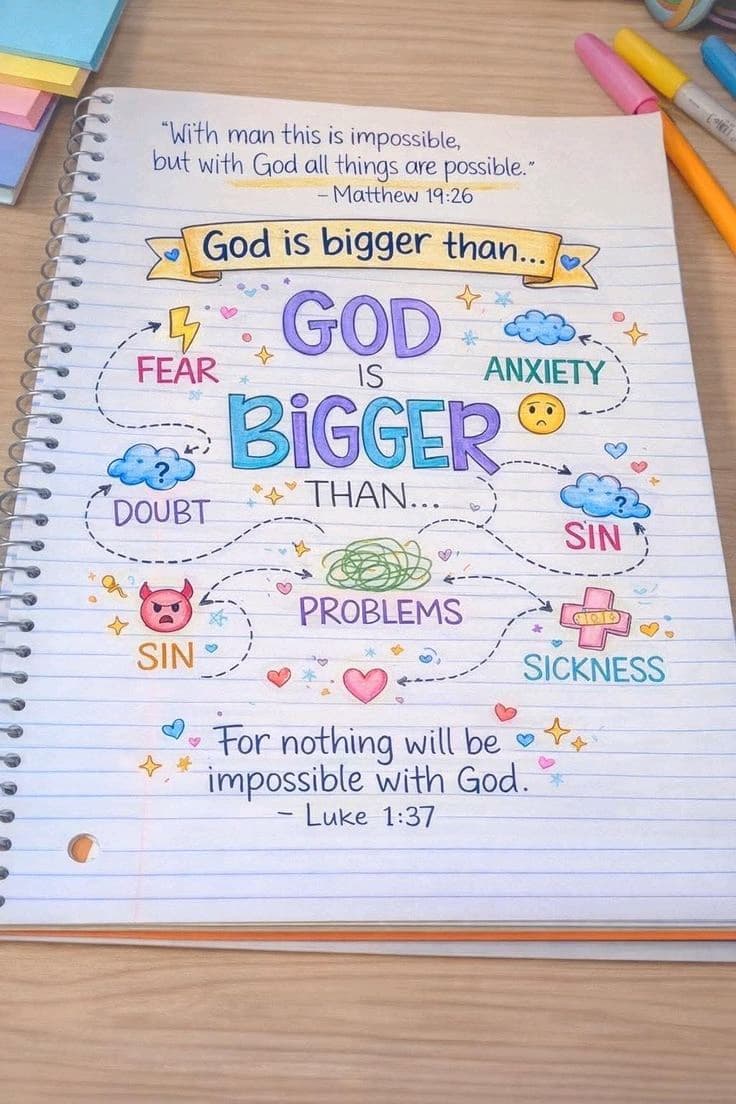 “With man this is impossible,
but with God all things are possible.”
– Matthew 19:26
God is bigger than...
GOD
IS
BiGGER
THAN...
FEAR
ANXIETY
?
DOUBT
?
SIN
PROBLEMS
SIN
SICKNESS
For nothing will be
impossible with God.
– Luke 1:37